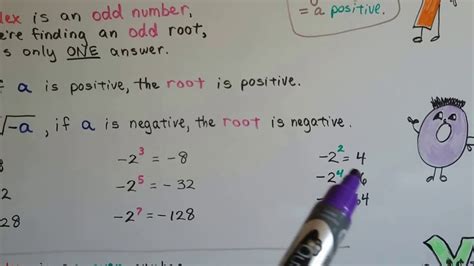 is an odd number,
= a positive.
finding an odd root,
only ONE answer.
a is positive, the root is positive.
√-a , if a is negative, the root is negative.
-2³ = -8 -2² = 4
-2⁵ = -32 -2⁴ 6
-2⁷ = -128 - 64